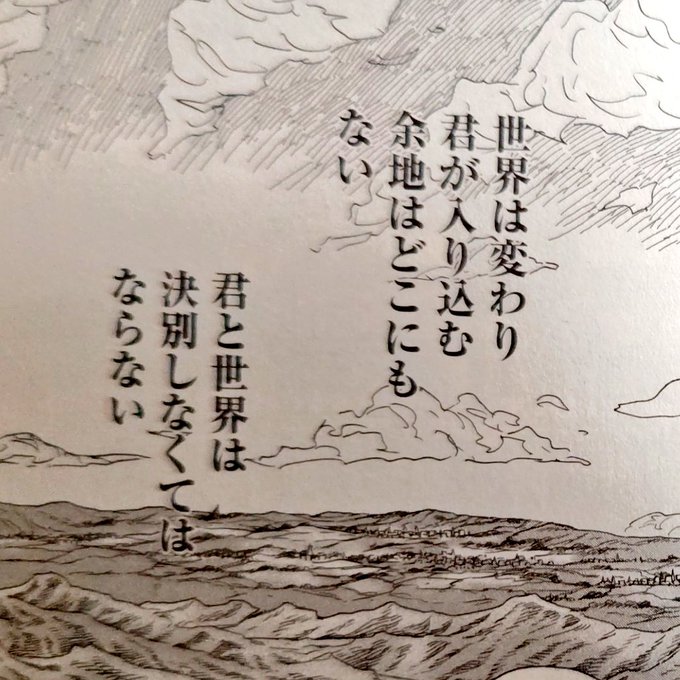 世界は変わり
君が入り込む
余地はどこにも
ない
君と世界は
決別しなくては
ならない